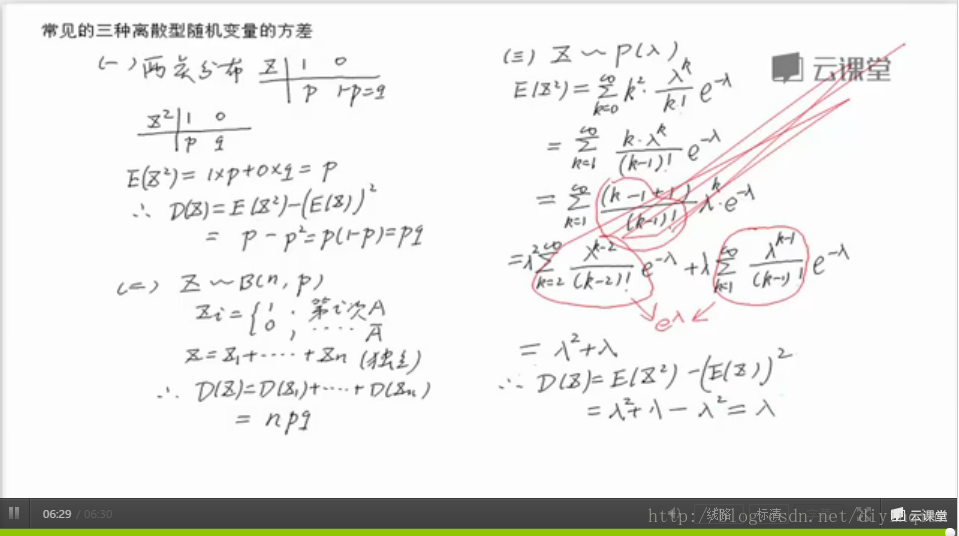 常见的三种离散型随机变量的方差
(一) 两点分布 Z | 1 0
p 1-p=q
Z² | 1 0
p q
E(Z²) = 1×p+0×q = p
∴ D(Z) = E(Z²)-(E(Z))²
= p-p²=p(1-p)=pq
(二) Z ~ B(n, p)
Zi = { 1 ; 第i次A
0 ; ····· Ā
Z=Z1+·····+Zn (独立)
∴ D(Z)=D(Z1)+·····+D(Zn)
= npq
(三) Z ~ P(λ)
E(Z²) = ∑_{k=0}^{∞} k² · λ^k/k! e^{-λ}
= ∑_{k=1}^{∞} k·λ^k/(k-1)! e^{-λ}
= ∑_{k=1}^{∞} (k-1+1)/(k-1)! λ^k·e^{-λ}
=λ² ∑_{k=2}^{∞} λ^{k-2}/(k-2)! e^{-λ} + λ ∑_{k=1}^{∞} λ^{k-1}/(k-1)! e^{-λ}
e^λ
= λ²+λ
∴ D(Z)=E(Z²)-(E(Z))²
=λ²+λ-λ²=λ
云课堂
06:29 / 06:30
线路
标清
云课堂